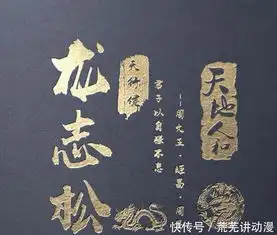 龙志松
天行健
君子以自强不息
——周文王·姬昌·周
天地人和
快传号 / 荒芜讲动漫